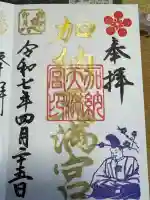 奉拝
加納天満宮
加納
天満
宮
令和七年四月二十五日